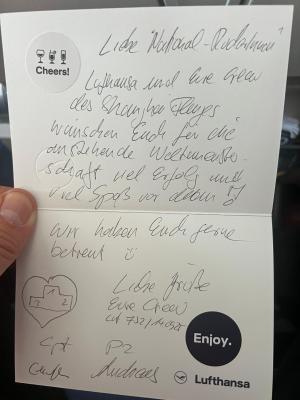 Cheers!
Liebe "National-Ruderinnen"
Lufthansa und Eure Crew
des Shanghai Fluges
wünschen Euch für die
anstehende Weltmeister-
schaft viel Erfolg und
viel Spaß vor allem!
Wir haben Euch gerne
betreut ☺
1
2 2
Liebe Grüße
Eure Crew
LH 732/
Enjoy.
Cpt P2
Andreas
Lufthansa